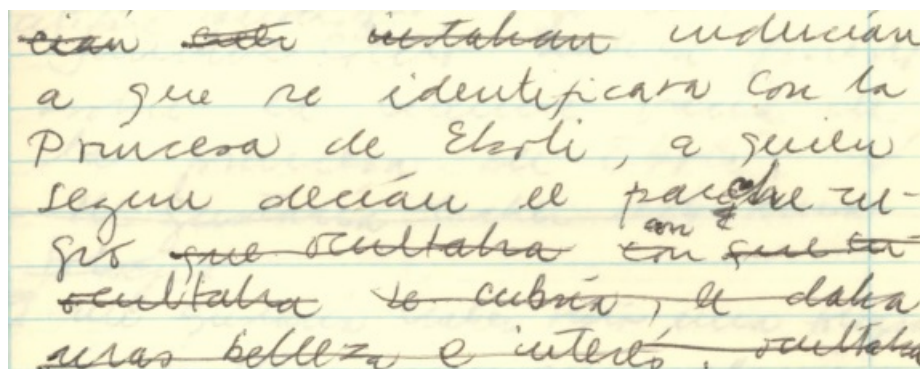 cian este instaban inducian
a que se identificara con la
Princesa de Eboli, a quien
segun decían el parche ne-
gro que ocultaba con con que su
ocultaba se cubría, le daba
mas belleza e interés, ocultaba